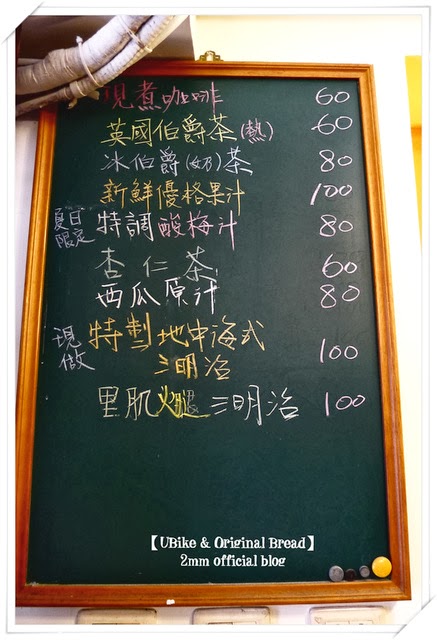 現煮咖啡 60
英國伯爵茶(熱) 60
冰伯爵(奶)茶 80
新鮮優格果汁 100
夏日限定 特調酸梅汁 80
杏仁茶 60
西瓜原汁 80
現做 特製地中海式
三明治 100
里肌火腿三明治 100
【UBike & Original Bread】
2mm official blog